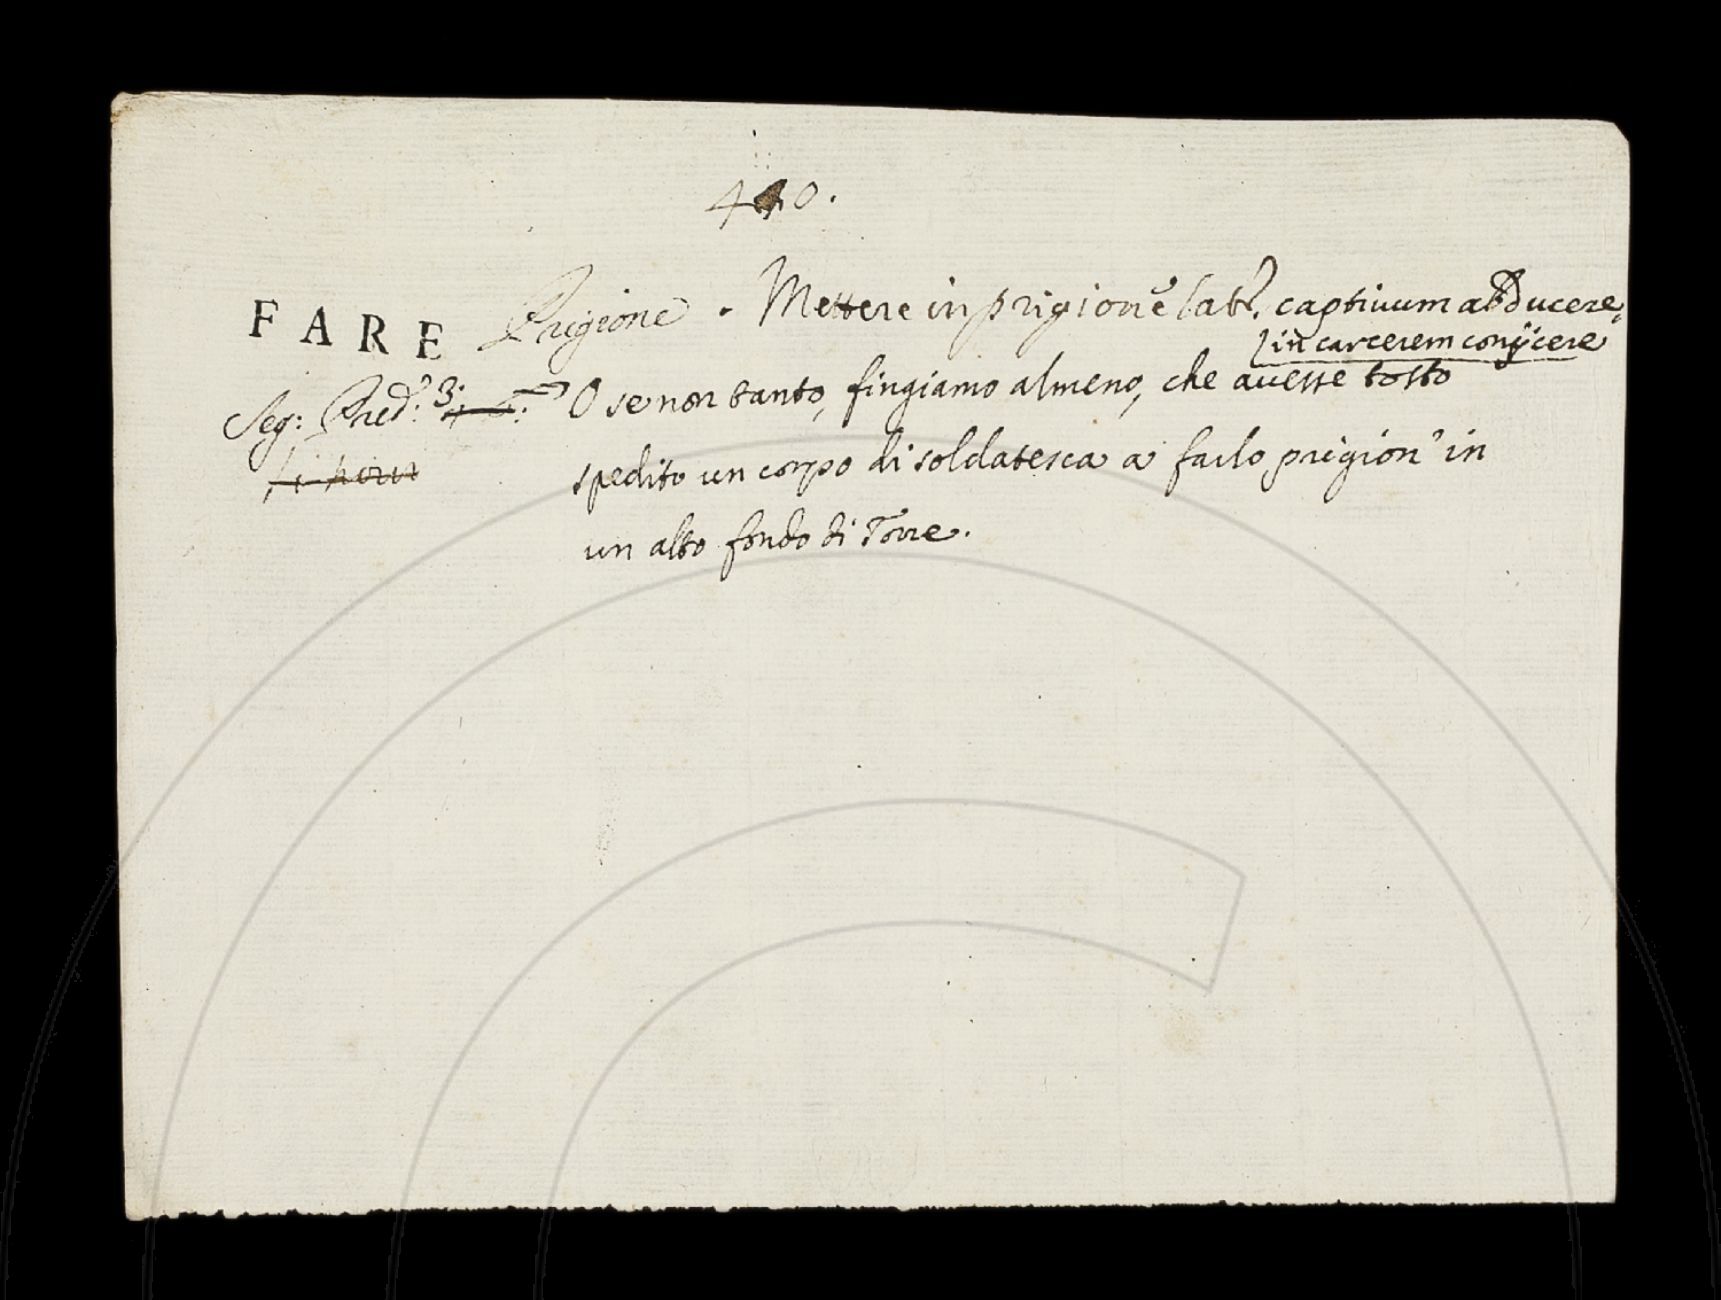 440.
FARE Prigione. Mettere in prigione lat. captivum abducere,
in carcerem conijcere
Seg: Pred: 3. O se non tanto, fingiamo almeno, che avesse tosto
spedito un corpo di soldatesca a farlo prigion' in
un alto fondo di Torre.